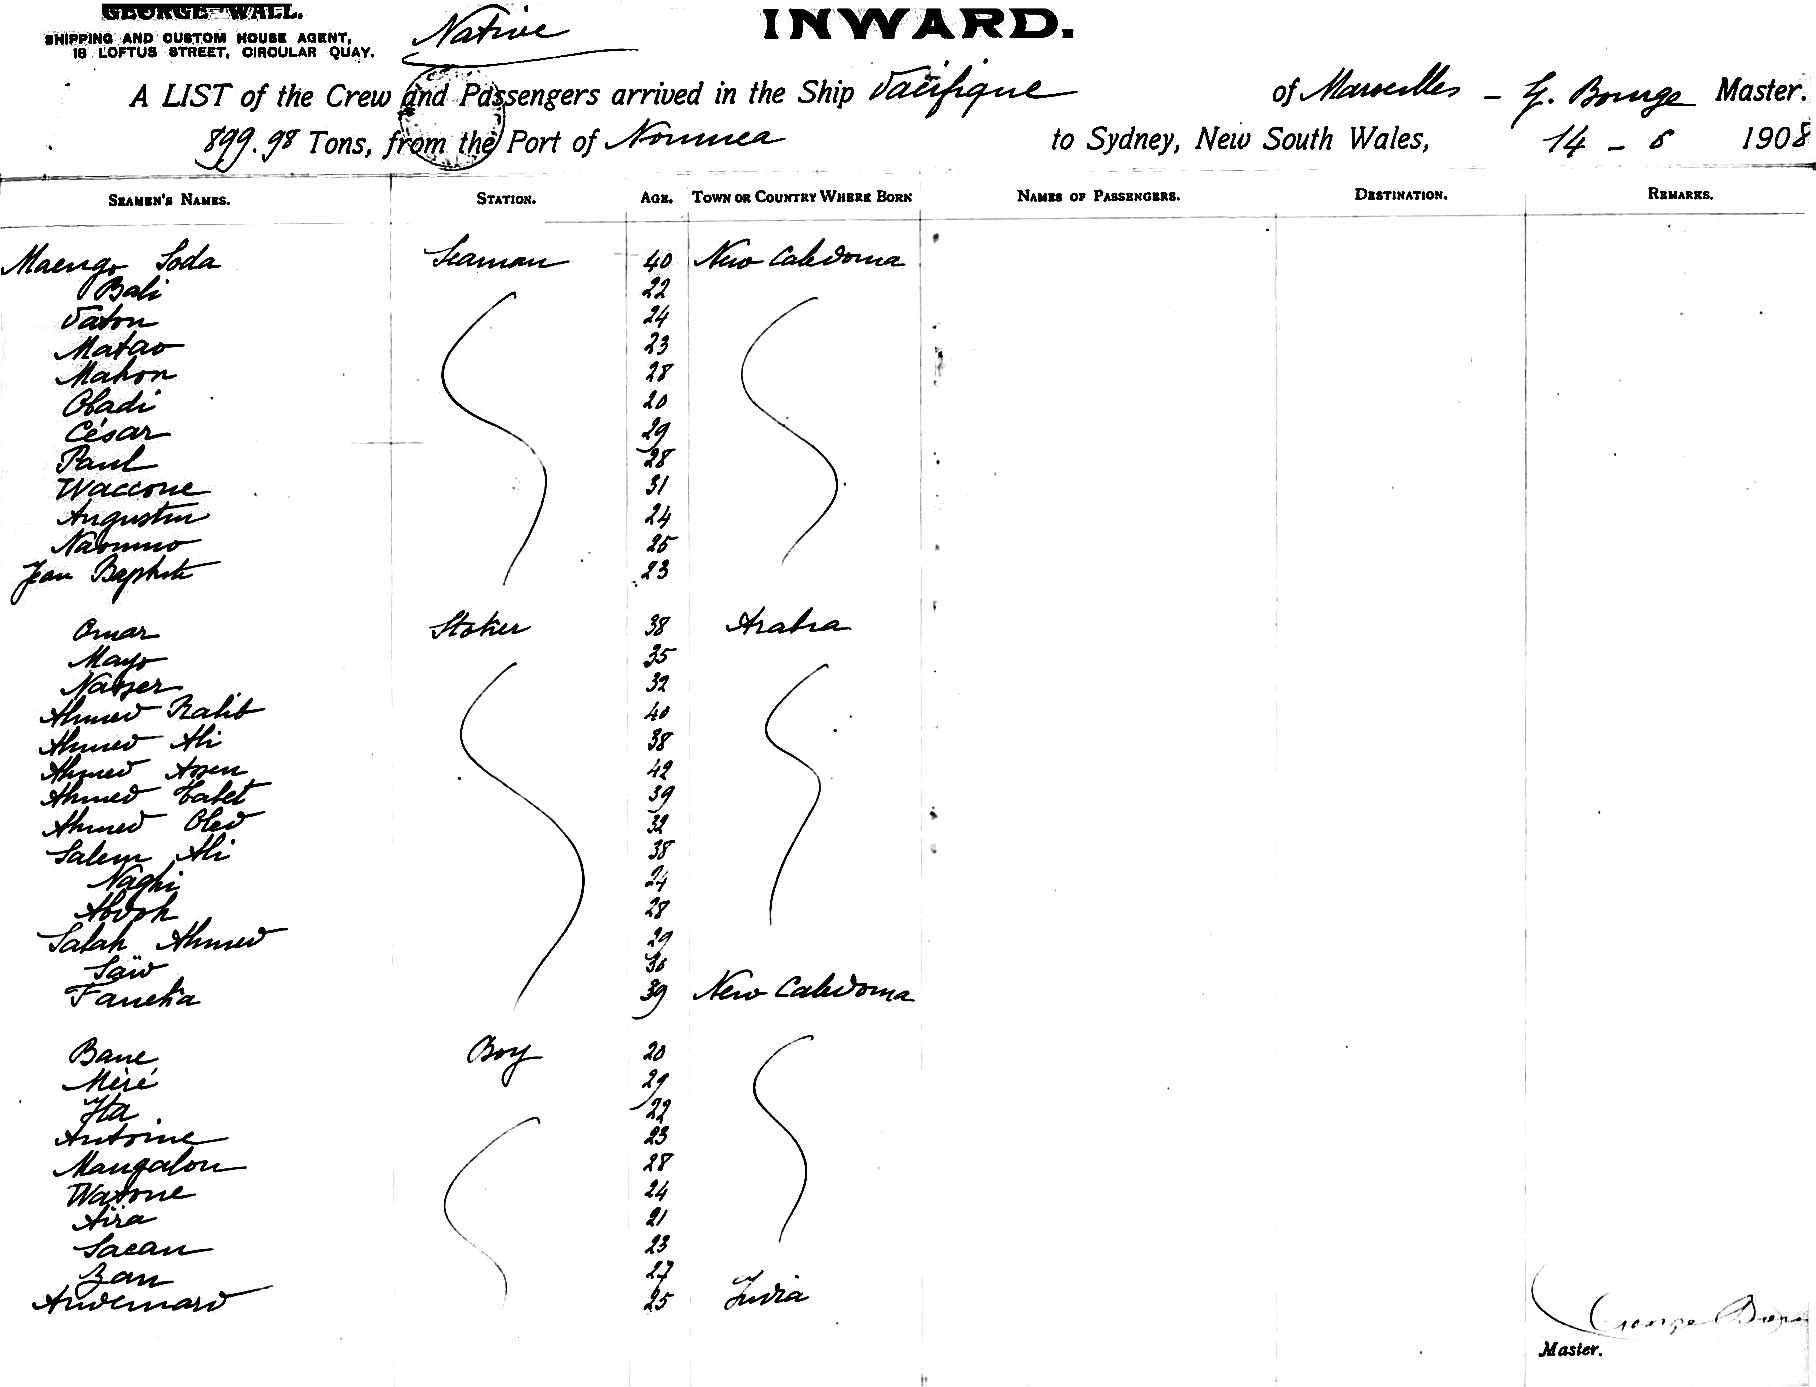 GEORGE WALL.
SHIPPING AND CUSTOM HOUSE AGENT,
18 LOFTUS STREET, CIRCULAR QUAY.
Native
INWARD.
A LIST of the Crew and Passengers arrived in the Ship Pacifique of Marseilles - G. Bourge Master.
899.98 Tons, from the Port of Noumea to Sydney, New South Wales, 14 - 6 1908
SEAMEN'S NAMES. STATION. AGE. TOWN OR COUNTRY WHERE BORN NAMES OF PASSENGERS. DESTINATION. REMARKS.
Maengo Soda Seaman 40 New Caledonia
Bali 22
Vaton 24
Matao 23
Mahon 28
Obadi 20
César 29
Paul 28
Waccone 31
Augustin 24
Naoumo 25
Jean Baptiste 23
Omar Stoker 38 Arabia
Mayo 35
Nasser 32
Ahmed Kalib 40
Ahmed Ali 38
Ahmed Assen 42
Ahmed Tabet 39
Ahmed Obed 32
Salem Ali 38
Naghi 24
Abdoh 28
Salah Ahmed 29
Saïd 30
Faneha 39 New Caledonia
Bane Boy 20
Méré 29
Ita 22
Antoine 23
Mangalou 28
Watone 24
Aira 21
Sacan 23
Zan 27
Andemard 25 India
George
Master.